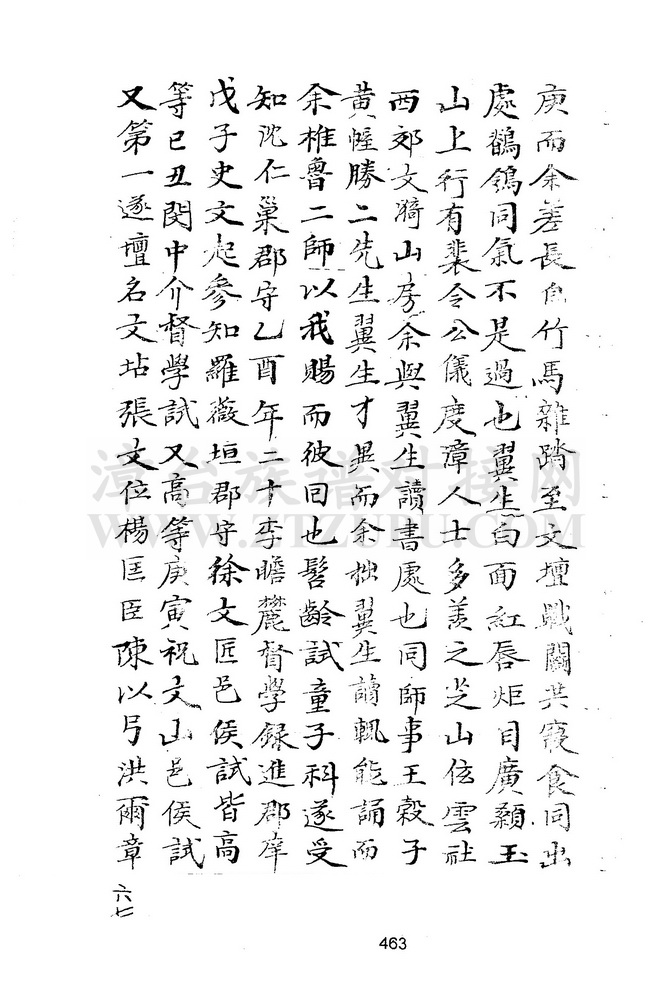 庚而余差長自竹馬雜踏至文壇戰鬭共寢食同出
處鶺鴒同氣不是過也翼生白面紅唇炬目廣顙玉
山上行有裴令公儀度漳人士多羨之芝山伭雲社
西郊文漪山房余與翼生讀書處也同師事王穀子
黃幄勝二先生翼生才異而余拙翼生讀輒能誦而
余椎魯二師以我賜而彼回也髫齡試童子科遂受
知沈仁巢郡守乙酉年二十李瞻麓督學錄進郡庠
戊子史文起參知羅薇垣郡守徐文匠邑侯試皆高
等己丑閔中介督學試又高等庚寅祝文山邑侯試
又第一遂壇名文坫張文位楊匡臣陳以弓洪爾章
六七
463
漳台族譜对接网
WWW.ZTZUPU.COM